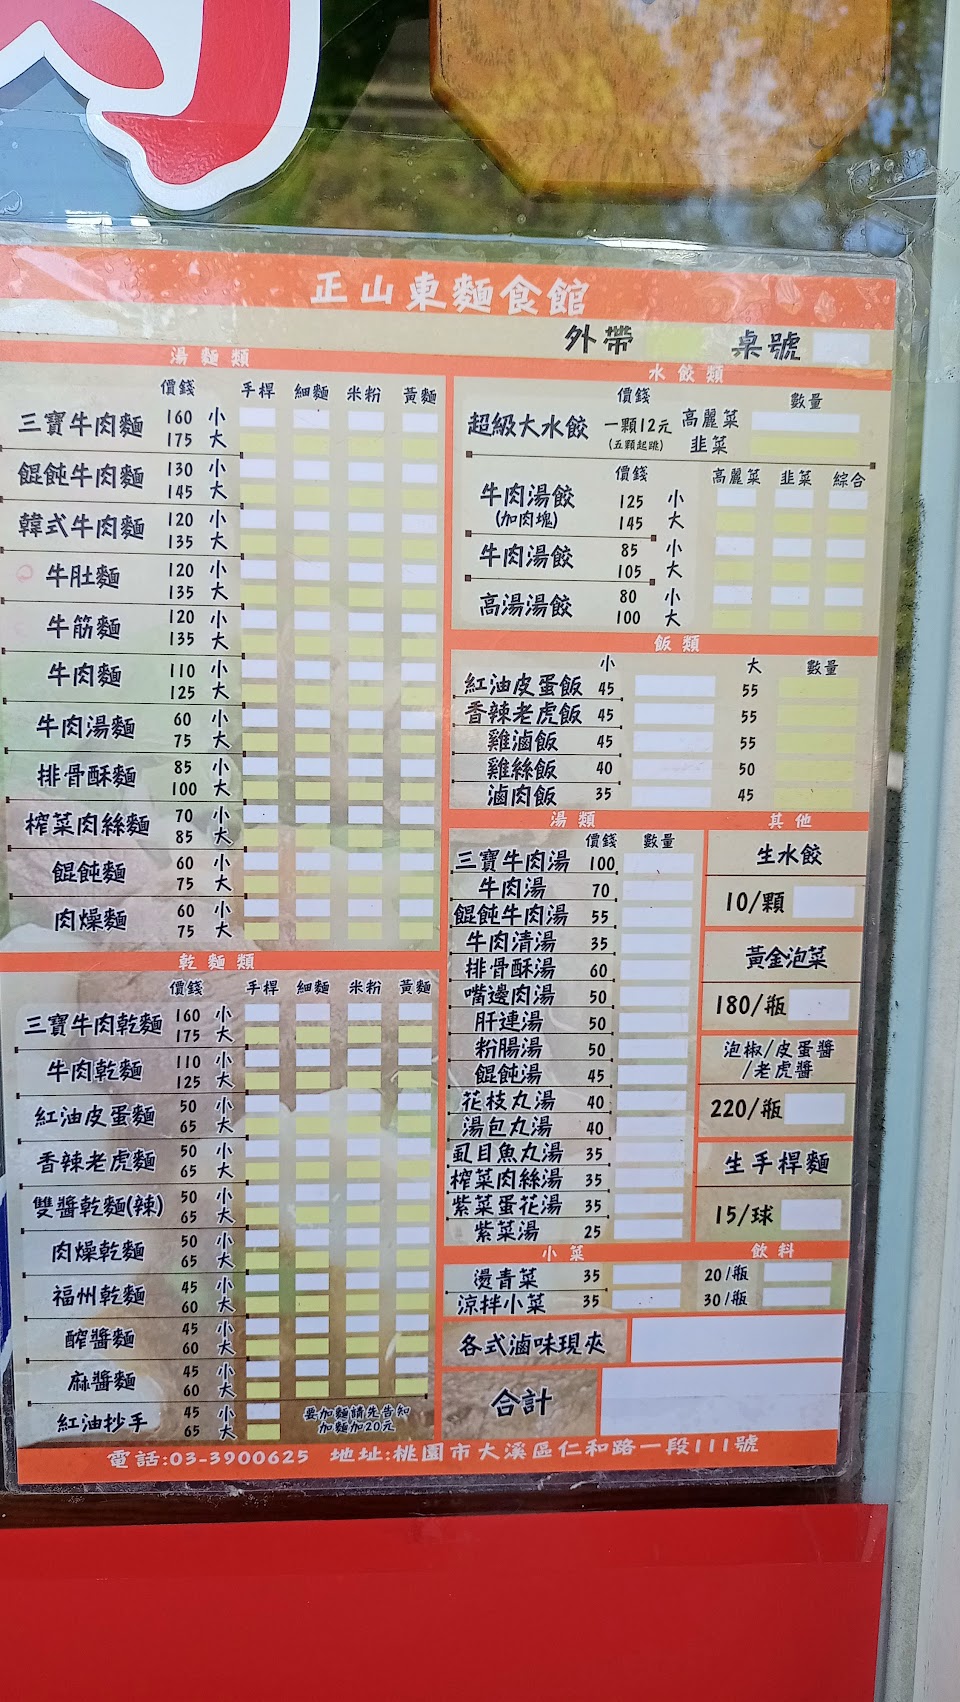 正山東麵食館
外帶 桌號
湯麵類
價錢 手桿 細麵 米粉 黃麵
三寶牛肉麵 160 小
175 大
餛飩牛肉麵 130 小
145 大
韓式牛肉麵 120 小
135 大
牛肚麵 120 小
135 大
牛筋麵 120 小
135 大
牛肉麵 110 小
125 大
牛肉湯麵 60 小
75 大
排骨酥麵 85 小
100 大
榨菜肉絲麵 70 小
85 大
餛飩麵 60 小
75 大
肉燥麵 60 小
75 大
乾麵類
價錢 手桿 細麵 米粉 黃麵
三寶牛肉乾麵 160 小
175 大
牛肉乾麵 110 小
125 大
紅油皮蛋麵 50 小
65 大
香辣老虎麵 50 小
65 大
雙醬乾麵(辣) 50 小
65 大
肉燥乾麵 50 小
65 大
福州乾麵 45 小
60 大
酢醬麵 45 小
60 大
麻醬麵 45 小
60 大
紅油抄手 45 小
65 大
要加麵請先告知
加麵加20元
水餃類
價錢 數量
超級大水餃 一顆12元 高麗菜
(五顆起跳) 韭菜
價錢 高麗菜 韭菜 綜合
牛肉湯餃 125 小
(加肉塊) 145 大
牛肉湯餃 85 小
105 大
高湯湯餃 80 小
100 大
飯類
小 大 數量
紅油皮蛋飯 45 55
香辣老虎飯 45 55
雞滷飯 45 55
雞絲飯 40 50
滷肉飯 35 45
湯類
價錢 數量
三寶牛肉湯 100
牛肉湯 70
餛飩牛肉湯 55
牛肉清湯 35
排骨酥湯 60
嘴邊肉湯 50
肝連湯 50
粉腸湯 50
餛飩湯 45
花枝丸湯 40
湯包丸湯 40
虱目魚丸湯 35
榨菜肉絲湯 35
紫菜蛋花湯 35
紫菜湯 25
其他
生水餃
10/顆
黃金泡菜
180/瓶
泡椒/皮蛋醬
/老虎醬
220/瓶
生手桿麵
15/球
小菜
燙青菜 35
涼拌小菜 35
飲料
20/瓶
30/瓶
各式滷味現夾
合計
電話:03-3900625 地址:桃園市大溪區仁和路一段111號